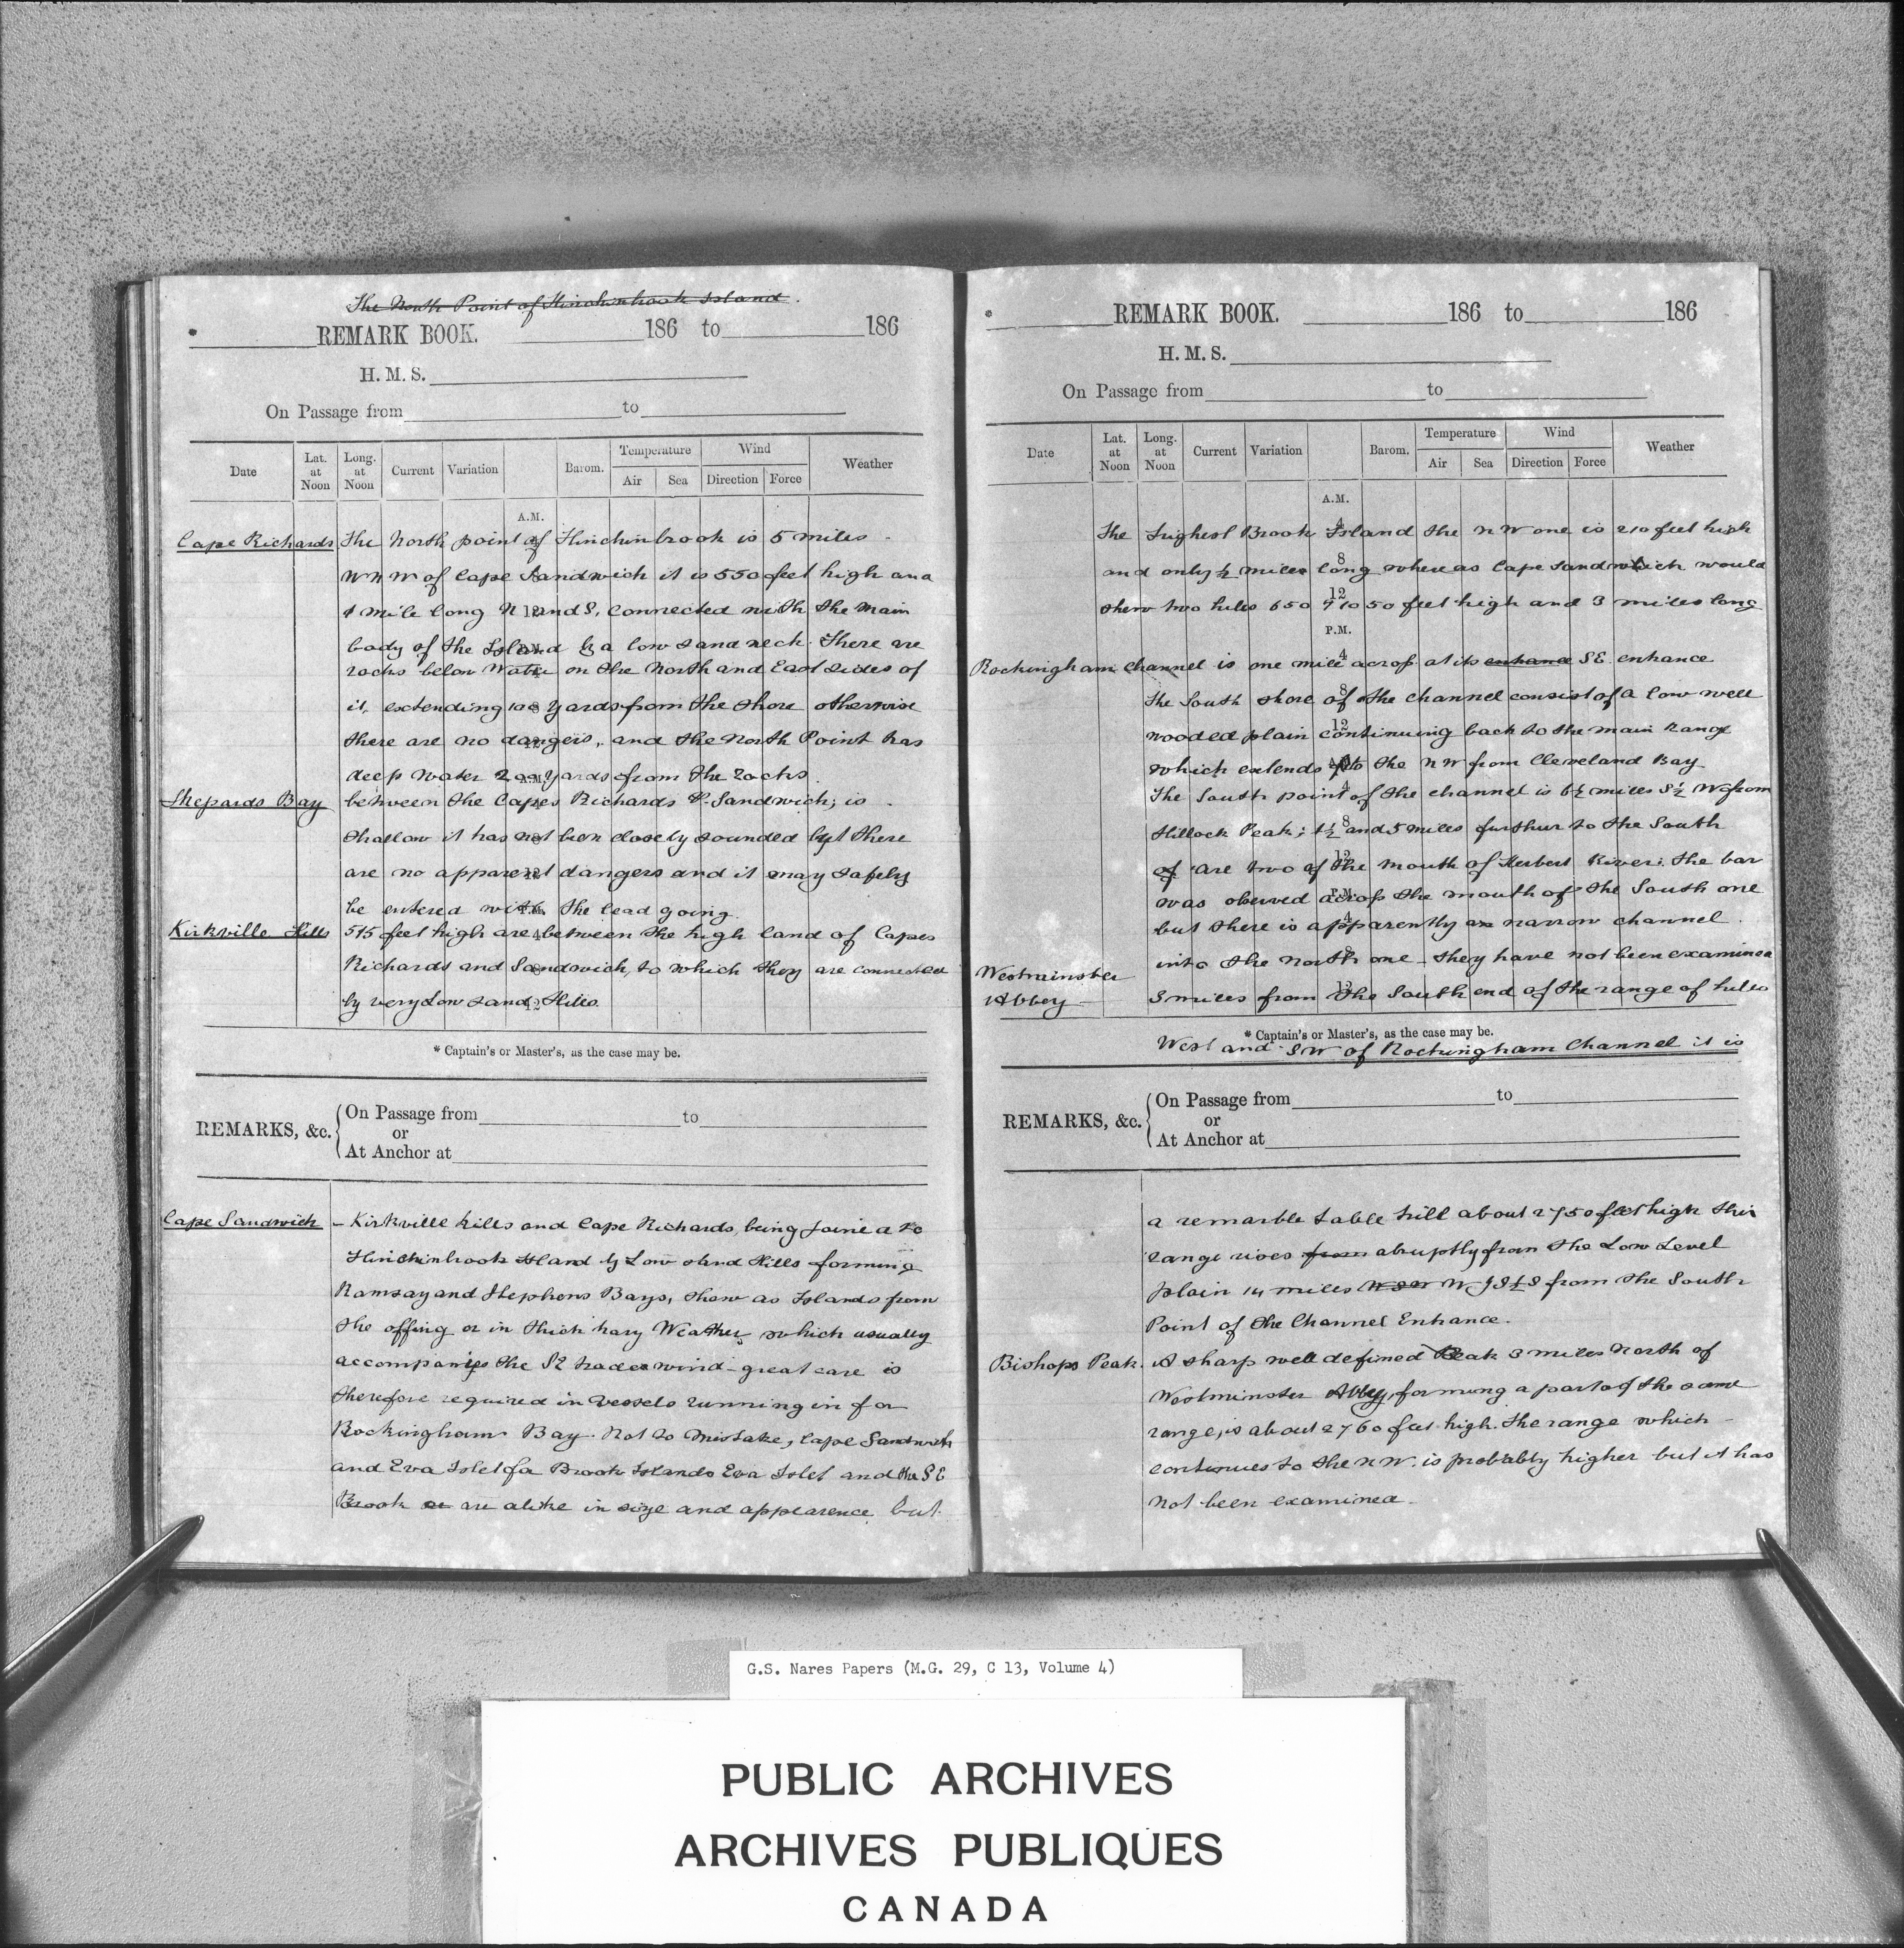 The North Point of Hinchinbrook Island.
* REMARK BOOK. 186 to 186
H. M. S.
On Passage from to
Date Lat. at Noon Long. at Noon Current Variation Barom. Temperature Air Sea Wind Direction Force Weather
A.M.
Cape Richards The North point of Hinchinbrook is 5 miles
WNW of Cape Sandwich it is 550 feet high and
1 mile long N and S, connected with the main
body of the Island by a low sand neck. There are
rocks below Water on the North and East sides of
it, extending 100 Yards from the shore otherwise
there are no dangers, and the North Point has
deep water 200 yards from the rocks.
Shepards Bay between the Capes Richards & Sandwich, is
shallow it has not been closely sounded but there
are no apparent dangers and it may safely
be entered with the lead going.
Kirkville Hills 515 feet high are between the high land of Capes
Richards and Sandwich, to which they are connected
by very Low sand Hills.
* Captain's or Master's, as the case may be.
REMARKS, &c. On Passage from to
or
At Anchor at
Cape Sandwich – Kirkville hills and Cape Richards, being joined to
Hinchinbrook Island by Low sand Hills forming
Ramsay and Shephens Bays, show as Islands from
the offing or in thick hazy Weather, which usually
accompanys the SE trades wind – great care is
therefore required in vessels running in for
Rockingham Bay. Not to mistake, Cape Sandwich
and Eva Islet for Brook Islands Eva Islet and the SE
Brook are alike in size and appearence but
* REMARK BOOK. 186 to 186
H. M. S.
On Passage from to
Date Lat. at Noon Long. at Noon Current Variation Barom. Temperature Air Sea Wind Direction Force Weather
A.M.
The highest Brook Island the NW one is 210 feet high
and only ½ miles long whereas Cape Sandwich would
show two hills 650 & 1050 feet high and 3 miles long
P.M.
Rockingham channel is one mile across at its entrance SE entrance
the South shore of the channel consist of a low well
wooded plain continuing back to the main range
which extends to the NW from Cleveland Bay
The South point of the channel is 6½ miles S½W from
Hillock Peak; 1½ and 5 miles furthur to the South
of are two of the mouth of Herbert River: the bar
was observed across the mouth of the South one
but there is apparently a narrow channel
into the north one – they have not been examined
Westminster
Abbey – 3 miles from the South end of the range of hills
* Captain's or Master's, as the case may be.
West and SW of Rockingham Channel it is
REMARKS, &c. On Passage from to
or
At Anchor at
a remarble table hill about 2750 feet high this
range rises from abruptly from the Low Level
plain 14 miles WSW from the South
Point of the Channel Entrance.
Bishops Peak. A sharp well defined Peak 3 miles North of
Westminster Abbey, forming a part of the same
range, is about 2760 feet high. The range which
continues to the NW. is probably higher but it has
not been examined.
G.S. Nares Papers (M.G. 29, C 13, Volume 4)
PUBLIC ARCHIVES
ARCHIVES PUBLIQUES
CANADA